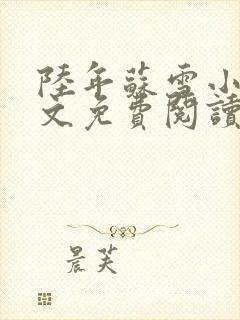 陸年蘇雪小
文免費閱讀
晨芙